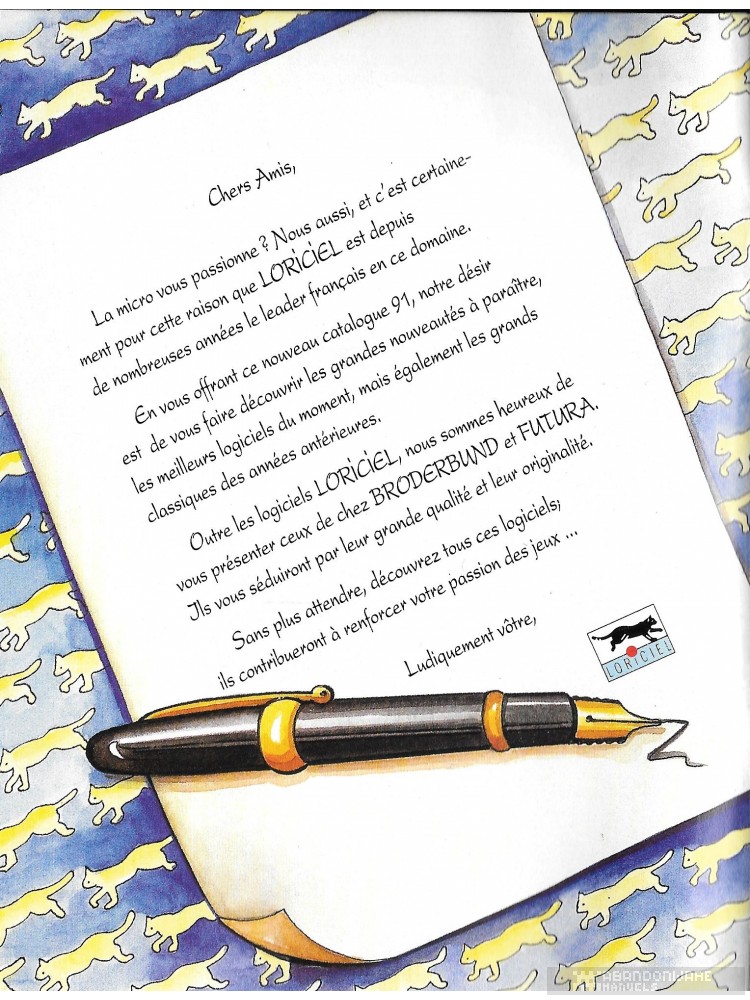 Chers Amis,
La micro vous passionne ? Nous aussi, et c'est certaine-
ment pour cette raison que LORICIEL est depuis
de nombreuses années le leader français en ce domaine.
En vous offrant ce nouveau catalogue 91, notre désir
est de vous faire découvrir les grandes nouveautés à paraître,
les meilleurs logiciels du moment, mais également les grands
classiques des années antérieures.
Outre les logiciels LORICIEL, nous sommes heureux de
vous présenter ceux de chez BRODERBUND et FUTURA.
Ils vous séduiront par leur grande qualité et leur originalité.
Sans plus attendre, découvrez tous ces logiciels;
ils contribueront à renforcer votre passion des jeux ...
Ludiquement vôtre,
LORICIEL
ABANDONWARE
MANUELS